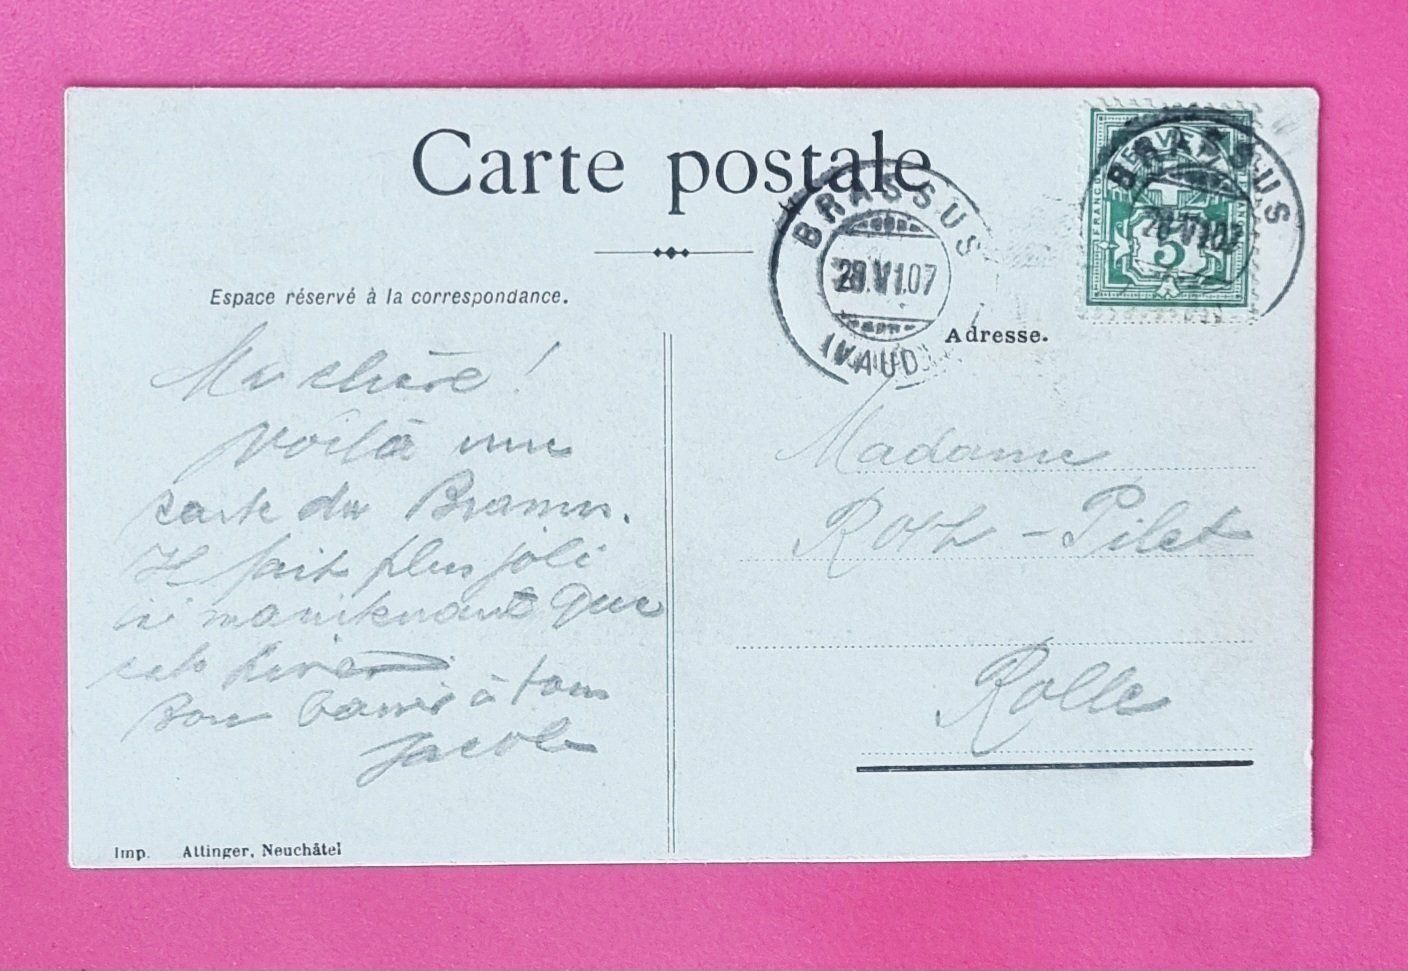 Carte postale
BRASSUS
VI.07
(VAUD)
BRASSUS
FRANCO
5
Espace réservé à la correspondance.
Adresse.
Ma chère !
Voilà une
carte du Brassus.
Il fait plus joli
ici maintenant que
cet hiver
Bon baiser à tous
Jacob
Madame
Roth-Pilet
Rolle
Imp. Attinger, Neuchâtel